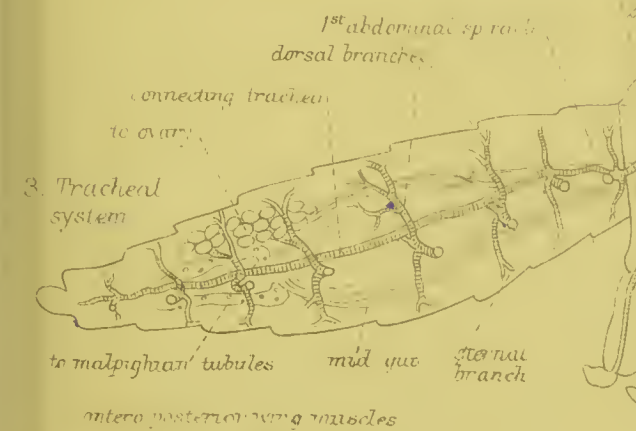 1st abdominal spiracle
dorsal branches
connecting tracheae
to ovary
3. Tracheal
system
to malpighian tubules
mid gut
sternal
branch
antero posterior wing muscles